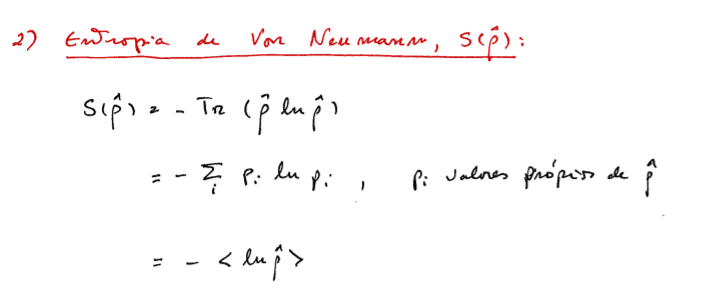 2) Entropia de Von Neumann, S(ρ̂):
S(ρ̂) = - Tr (ρ̂ ln ρ̂)
= - Σ_i p_i ln p_i , p_i valores próprios de ρ̂
= - < ln ρ̂ >